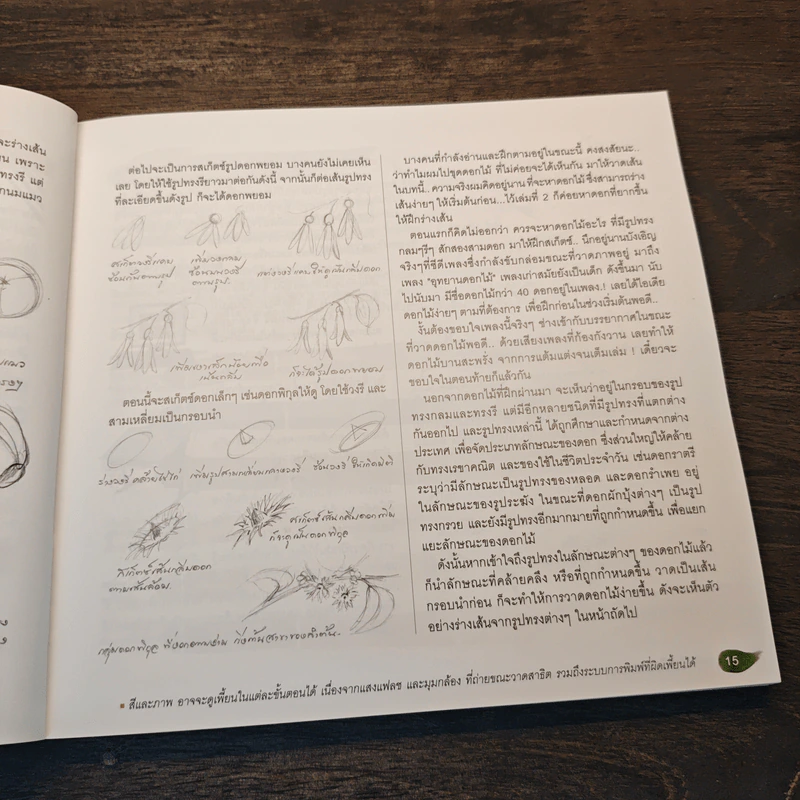 จะร่างเส้น
น เพราะ
ทรงรี แต่
กนมแมว
ต่อไปจะเป็นการสเก็ตซ์รูปดอกพยอม บางคนยังไม่เคยเห็น
เลย โดยให้ใช้รูปทรงรียาวมาต่อกันดังนี้ จากนั้นก็ต่อเส้นรูปทรง
ที่ละเอียดขึ้นดังรูป ก็จะได้ดอกพยอม
สเก็ตวงรีแบบ
ซ้อนกันตามรูป
เพิ่มวงแบบ
ซ้อนบนวงรี
ตามรูป.
แต่งวงรี แบบ ให้ดูเส้นเพิ่มดอก
ก็จะได้รูปดอกพยอม
ตอนนี้จะสเก็ตช์ดอกเล็กๆ เช่นดอกพิกุลให้ดู โดยใช้วงรี และ
สามเหลี่ยมเป็นกรอบนำ
ร่างวงรี คล้ายไข่ไก่
เพิ่มรูปสามเหลี่ยมกลางวงรี
ซ้อนวงรี ให้เกิดมิติ
สเก็ตช์เส้นกลีบดอกเพิ่ม
ก็จะดูเป็นดอกพิกุล
สเก็ตช์เส้นกลีบดอก
ตามเส้นล้อม.
กลุ่มดอกพิกุล
บางคนที่กำลังอ่านและฝึกตามอยู่ในขณะนี้ คงสงสัยนะ..
ว่าทำไมผมไปขุดดอกไม้ ที่ไม่ค่อยจะได้เห็นกัน มาให้วาดเส้น
ในบทนี้.. ความจริงผมคิดอยู่นาน ที่จะหาดอกไม้ ซึ่งสามารถร่าง
เส้นง่ายๆ ให้เริ่มต้นก่อน...ไว้เล่มที่ 2 ก็ค่อยหาดอกที่ยากขึ้น
ให้ฝึกร่างเส้น
ตอนแรกก็คิดไม่ออกว่า ควรจะหาดอกไม้อะไร ที่มีรูปทรง
กลมๆรีๆ สักสองสามดอก มาให้ฝึกสเก็ตช์.. นึกอยู่นานบังเอิญ
จริงๆที่ซีดีเพลงซึ่งกำลังขับกล่อมขณะที่วาดภาพอยู่ มาถึง
เพลง "อุทยานดอกไม้" เพลงเก่าสมัยยังเป็นเด็ก ดังขึ้นมา นับ
ไปนับมา มีชื่อดอกไม้กว่า 40 ดอกอยู่ในเพลง.! เลยได้ไอเดีย
ดอกไม้ง่ายๆ ตามที่ต้องการ เพื่อฝึกก่อนในช่วงเริ่มต้นพอดี..
งั้นต้องขอบใจเพลงนี้จริงๆ ช่างเข้ากับบรรยากาศในขณะ
ที่วาดดอกไม้พอดี.. ด้วยเสียงเพลงที่ก้องกังวาน เลยทำให้
ดอกไม้บานสะพรั่ง จากการแต้มแต่งจนเต็มเล่ม ! เดี๋ยวจะ
ขอบใจในตอนท้ายก็แล้วกัน
นอกจากดอกไม้ที่ฝึกผ่านมา จะเห็นว่าอยู่ในกรอบของรูป
ทรงกลมและทรงรี แต่มีอีกหลายชนิดที่มีรูปทรงที่แตกต่าง
กันออกไป และรูปทรงเหล่านี้ ได้ถูกศึกษาและกำหนดจากต่าง
ประเทศ เพื่อจัดประเภทลักษณะของดอก ซึ่งส่วนใหญ่ให้คล้าย
กับทรงเรขาคณิต และของใช้ในชีวิตประจำวัน เช่นดอกราตรี
ระบุว่ามีลักษณะเป็นรูปทรงของหลอด และดอกรำเพย อยู่
ในลักษณะของรูประฆัง ในขณะที่ดอกผักบุ้งต่างๆ เป็นรูป
ทรงกรวย และยังมีรูปทรงอีกมากมายที่ถูกกำหนดขึ้น เพื่อแยก
แยะลักษณะของดอกไม้
ดังนั้นหากเข้าใจถึงรูปทรงในลักษณะต่างๆ ของดอกไม้แล้ว
ก็นำลักษณะที่คล้ายคลึง หรือที่ถูกกำหนดขึ้น วาดเป็นเส้น
กรอบนำก่อน ก็จะทำให้การวาดดอกไม้ง่ายขึ้น ดังจะเห็นตัว
อย่างร่างเส้นจากรูปทรงต่างๆ ในหน้าถัดไป
15
สีและภาพ อาจจะดูเพี้ยนในแต่ละขั้นตอนได้ เนื่องจากแสงแฟลช และมุมกล้อง ที่ถ่ายขณะวาดสาธิต รวมถึงระบบการพิมพ์ที่ผิดเพี้ยนได้